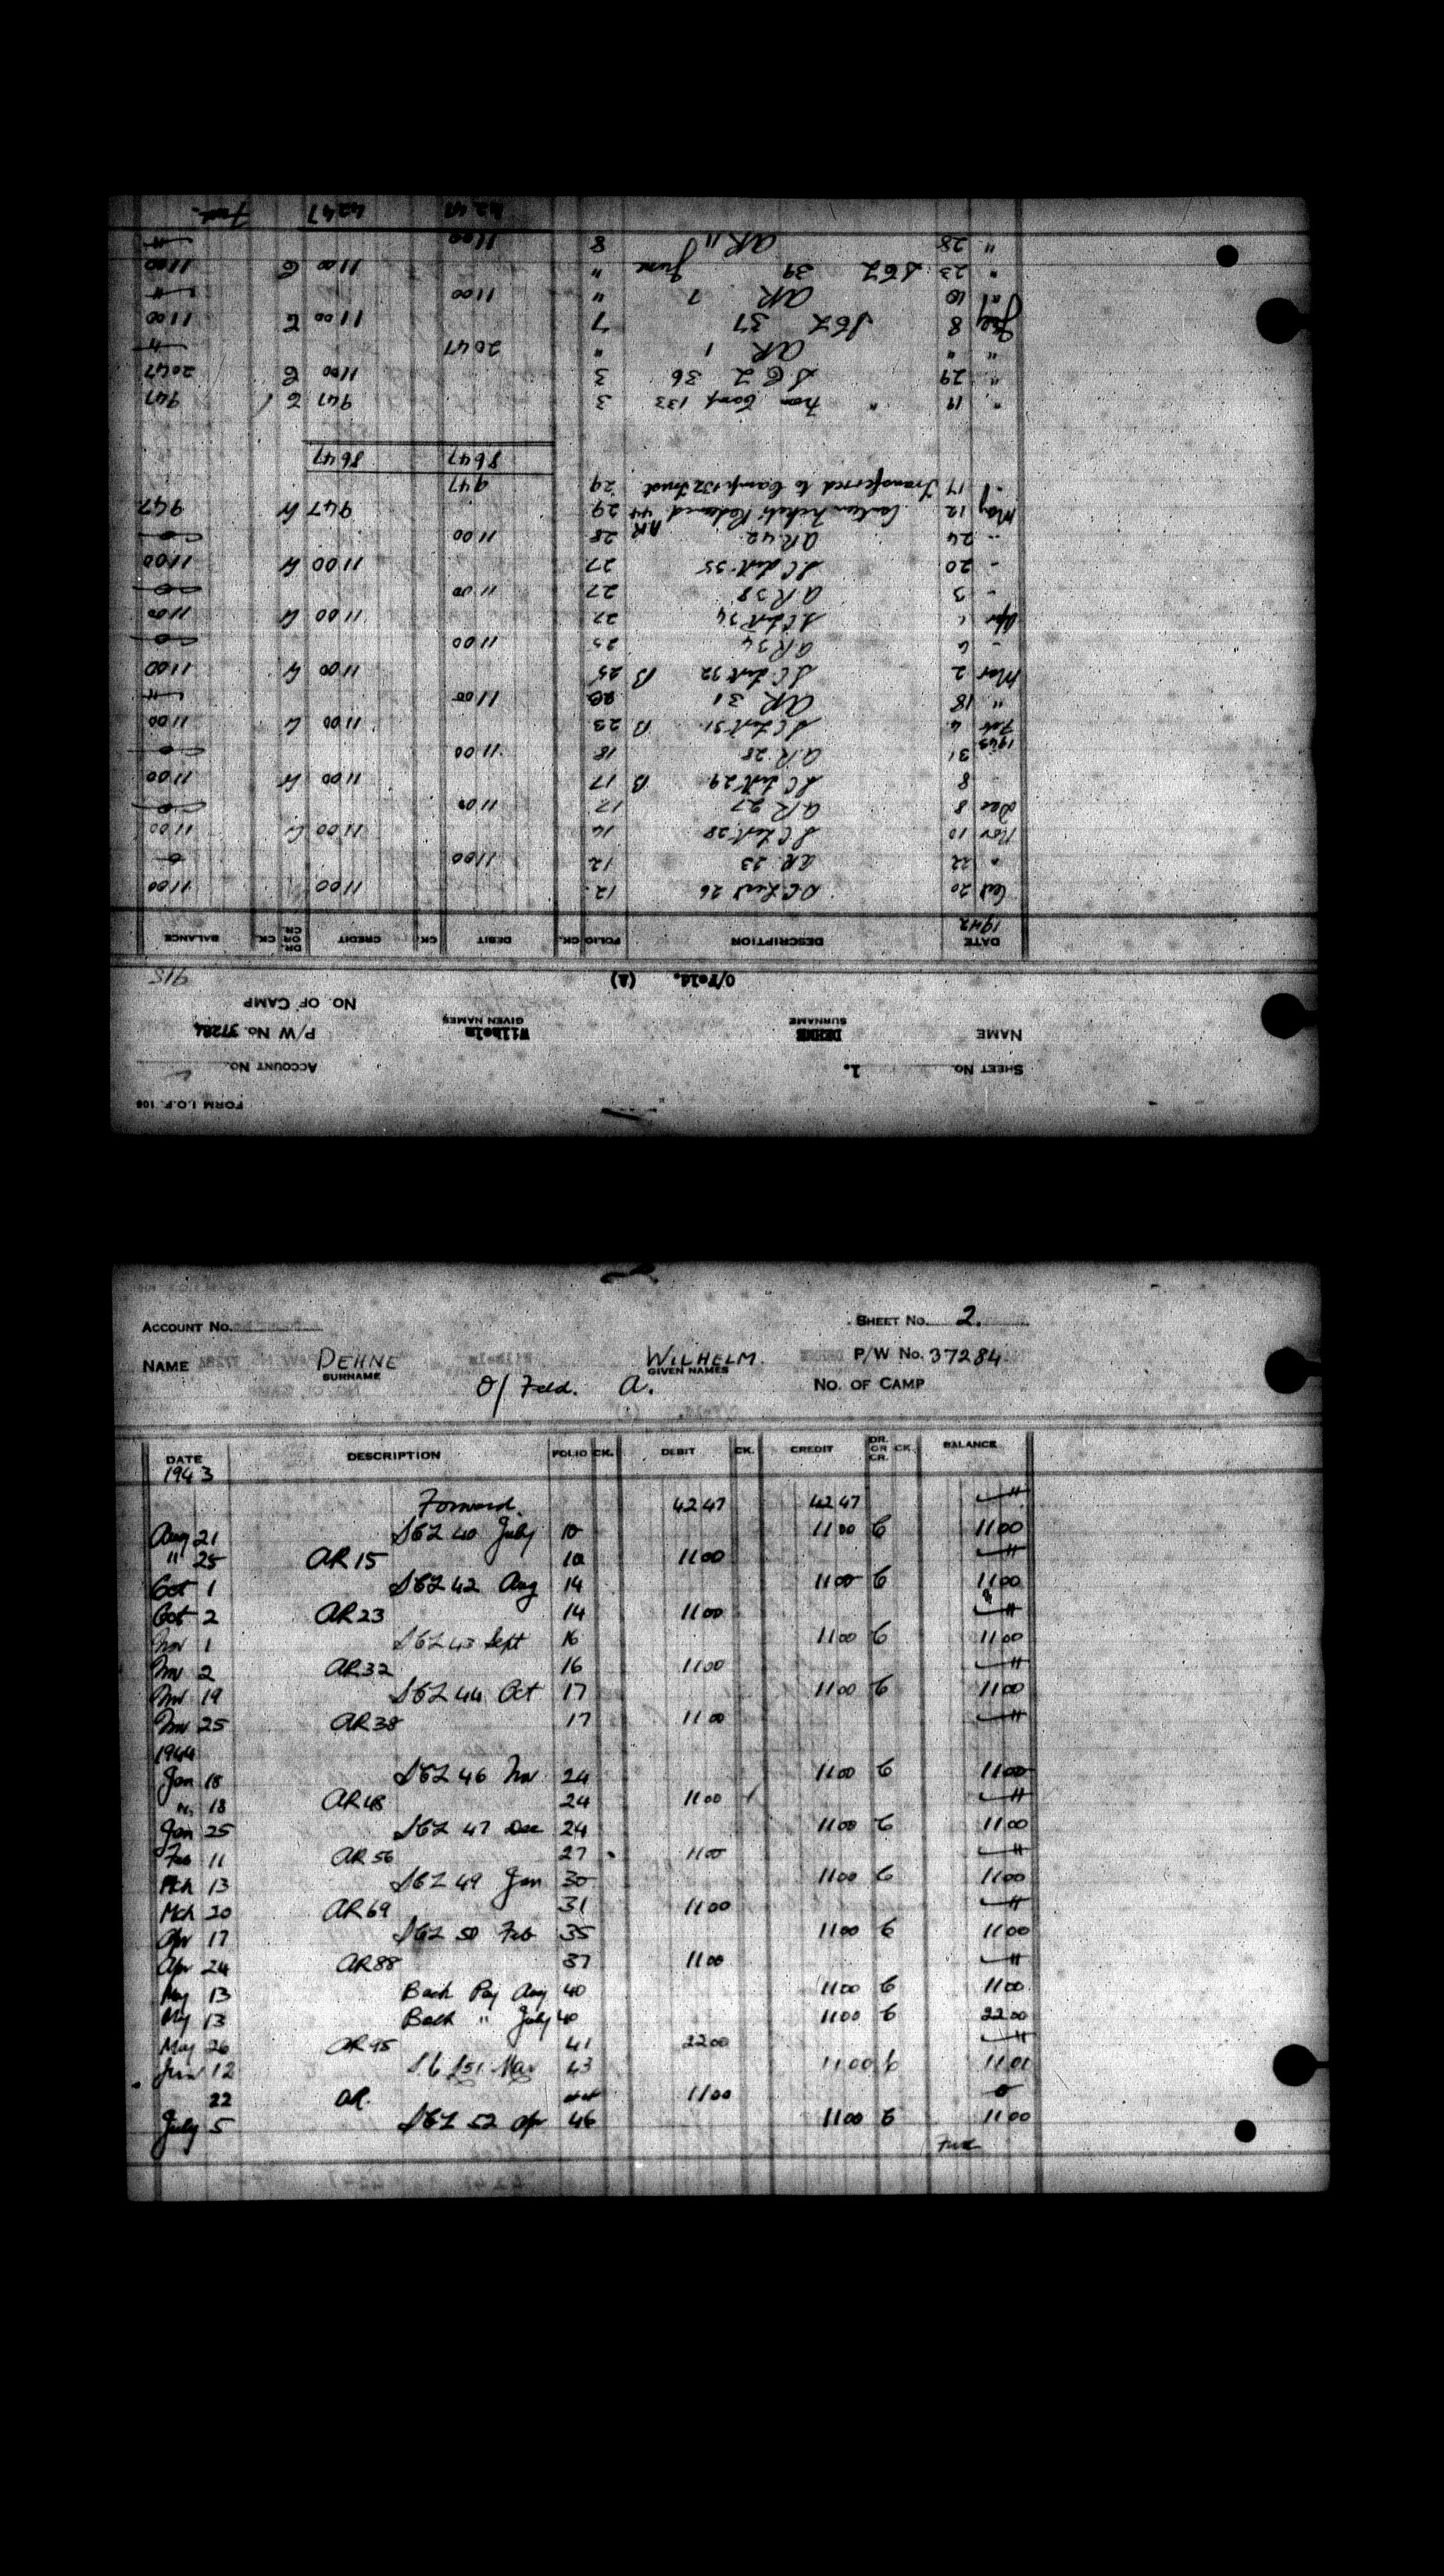 FORM I.O.F. 108
SHEET No. 1. ACCOUNT No.
NAME DEHNE Wilhelm P/W No. 37284
SURNAME GIVEN NAMES
NO. OF CAMP
O/Feld. (A) 915
DATE DESCRIPTION FOLIO CK. DEBIT CK. CREDIT DR. OR CR. CK. BALANCE
1942
Oct 20 26 12 1100 1100
" 22 AR 23 12 1100 0
Nov 10 28 14 1100 1100
Dec 8 AR 27 17 1100 0
- 8 29 B 17 1100 1100
31 AR 28 18 1100 0
1943
Feb 4 31 B 23 1100 1100
" 18 AR 31 1100
Mar 2 32 B 25 1100 1100
- 6 AR 34 25 1100 0
Apr 1 34 27 1100 1100
- 3 AR 38 27 1100 0
- 20 35 27 1100 1100
- 24 AR 42 28 1100 0
May 12 Canteen Tickets Redeemed AR 44 29 947 947
- 17 Transferred to Camp 132 Trust 29 947
8647 8647
" 19 " from Camp 133 3 947 C 947
" 29 SCL 36 3 1100 C 2047
" " AR 1 " 2047
July 8 SCL 37 7 1100 C 1100
" 10 AR 7 " 1100
" 23 SCL 39 June " 1100 C 1100
" 28 AR 11 8 1100
4247 4247 Fwd.
ACCOUNT No. SHEET No. 2.
NAME DEHNE WILHELM. P/W No. 37284
SURNAME GIVEN NAMES
O/Feld. A. NO. OF CAMP
DATE DESCRIPTION FOLIO CK. DEBIT CK. CREDIT DR. OR CR. CK. BALANCE
1943
Forward. 4247 4247
Aug 21 SCL 40 July 10 1100 C 1100
" 25 AR 15 10 1100
Oct 1 SCL 42 Aug 14 1100 C 1100
Oct 2 AR 23 14 1100
Nov 1 SCL 43 Sept 16 1100 C 1100
Nov 2 AR 32 16 1100
Nov 19 SCL 44 Oct 17 1100 C 1100
Nov 25 AR 38 17 1100
1944
Jan 18 SCL 46 Nov 24 1100 C 1100
" 18 AR 48 24 1100
Jan 25 SCL 47 Dec 24 1100 C 1100
Feb 11 AR 56 27 1100
Mch 13 SCL 49 Jan 30 1100 C 1100
Mch 20 AR 69 31 1100
Apr 17 SCL 50 Feb 35 1100 C 1100
Apr 24 AR 88 37 1100
May 13 Back Pay Aug 40 1100 C 1100
May 13 Back " July 40 1100 C 2200
May 26 AR 95 41 2200
Jun 12 SCL 51 Mar 43 1100 C 1100
22 AR. 44 1100 0
July 5 SCL 52 Apr 46 1100 C 1100
Fwd